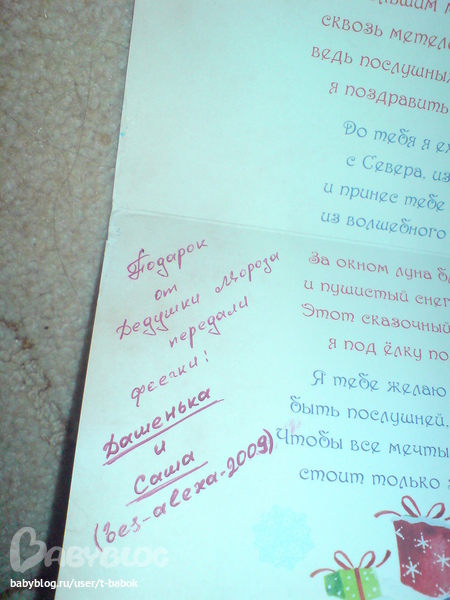 сквозь метел
ведь послушных
я поздравить
До тебя я ех
с Севера, из
и принес тебе
из волшебного
Подарок
от
Дедушки Мороза
передали
феечки!
Дашенька
и
Саша
(bes-alexa-2009)
За окном луна б
и пушистый снег
Этот сказочный
я под ёлку по
Я тебе желаю
быть послушней,
Чтобы все мечты
стоит только
BABYBLOG
babyblog.ru/user/t-babok